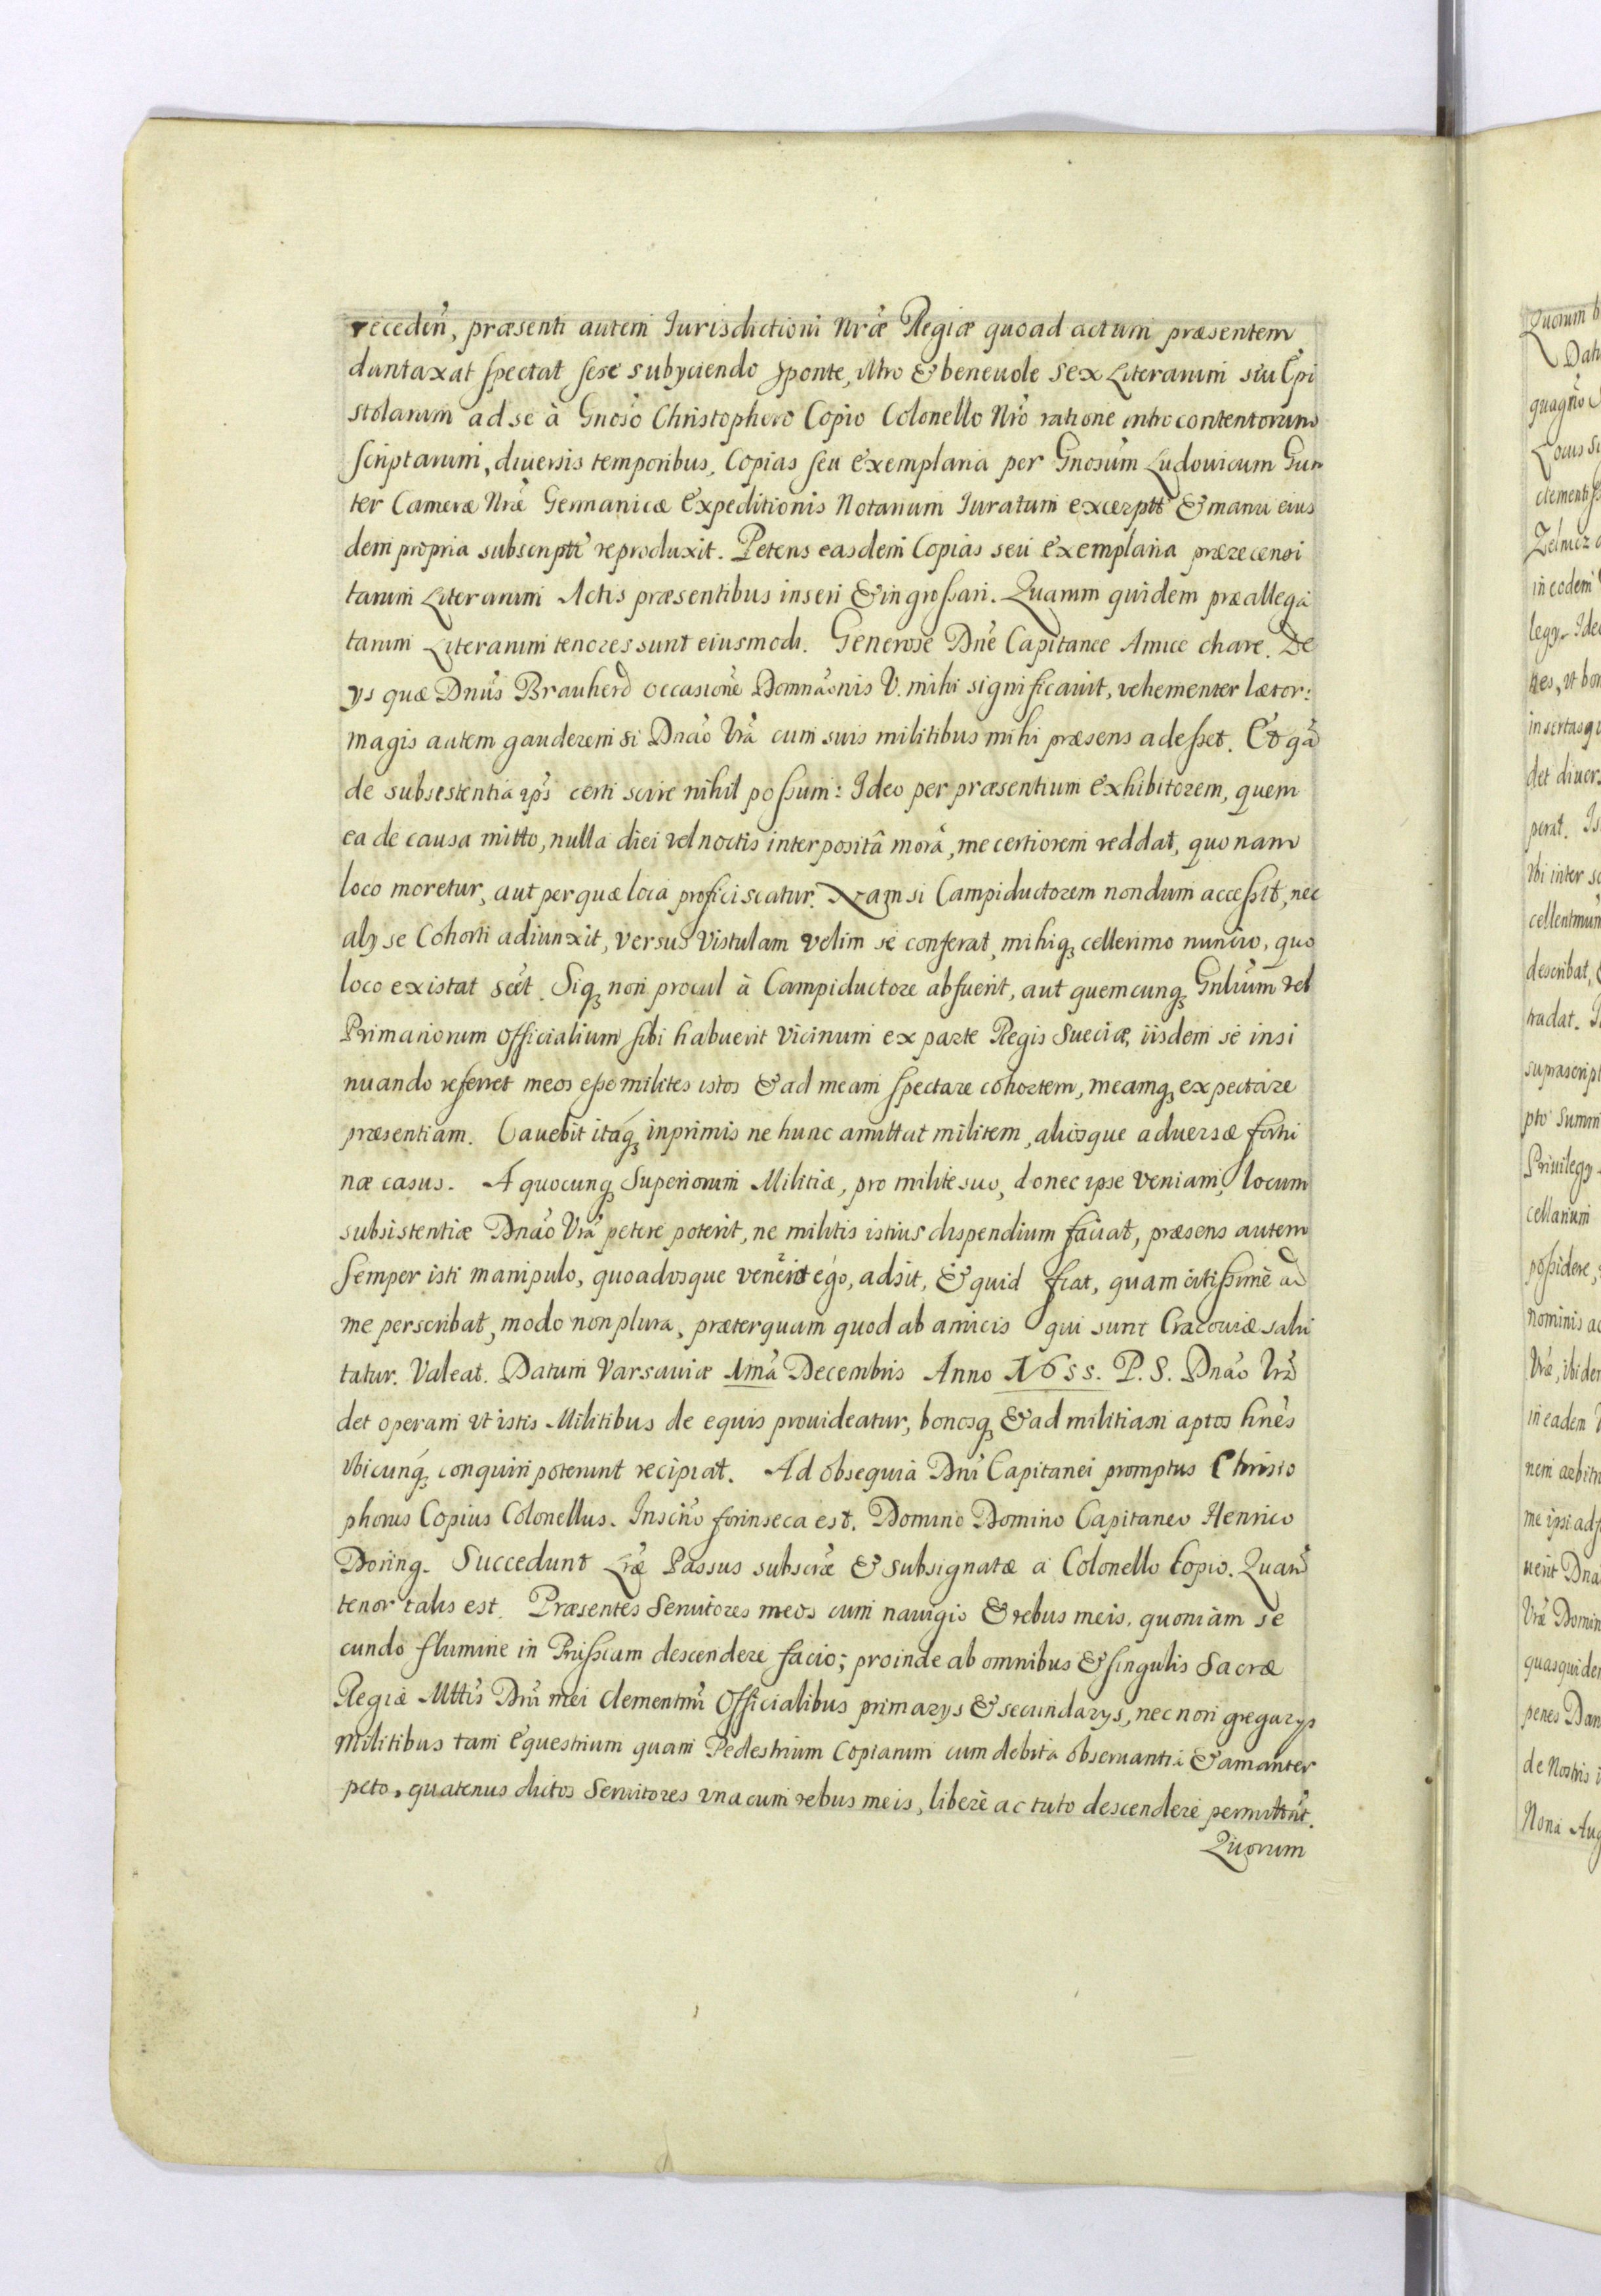 recedeñ, præsenti autem Iurisdictioni Nræ Regiæ quoad actum præsentem
duntaxat spectat sese subyciendo sponte, vltro & beneuole sex Literarum siu Epi
stolarum ad se à Gnoso Christophoro Copio Colonello Nrõ ratione intro contentorum
scriptarum, diuersis temporibus, Copias seu exemplaria per Gnosum Ludouicum Gun
ter Cameræ Nræ Germanicæ Expeditionis Notarium Iuratum excerptt & manu eius
dem propria subscriptt reproduxit. Petens easdem Copias seu exemplaria præzecensi
tarum Literarum Actis præsentibus inseri & ingrossari. Quarum quidem præallega
tarum Literarum tenores sunt eiusmodi. Generose Dñe Capitanee Amice chare. De
ys quæ Dnũs Brauherd occasione Domnãonis V. mihi significauit, vehementer lætor:
magis autem gauderem si Dnão Vrã cum suis militibus mihi præsens adesset. Et qã
de subsistentia ipŝ certi scire nihil possum: Ideo per præsentium exhibitorem, quem
ea de causa mitto, nulla diei vel noctis interpositâ morâ, me certiorem reddat, quonam
loco moretur, aut per quæ loca proficiscatur. Nam si Campiductorem nondum accessit, nec
aly se Cohorti adiunxit, versus Vistulam velim se conferat, mihiq3 cellerimo nuncio, quo
loco existat scet. Siq3 non procul à Campiductore abfuerit, aut quemcunq3 Gnlium vel
Primariorum Officialium sibi habuerit vicinum ex parte Regis Sueciæ, iisdem se insi
nuando referret meos esse milites istos & ad meam spectare cohortem, meamq3 expectare
præsentiam. Cauebit itaq3 inprimis ne hunc amittat militem, aliosque aduersæ fortu
næ casus. A quocunq3 Superiorum Militiæ, pro milite suo, donec ipse veniam, locum
subsistentiæ Dnão Vrã petere poterit, ne militis istius dispendium faciat, præsens autem
semper isti manipulo, quoadusque venerit ego, adsit, & quid fiat, quam citissimè ad
me perscribat, modo non plura, præterquam quod ab amicis qui sunt Cracoviæ salu
tatur. Valeat. Datum Varsaviæ 1mã Decembris Anno 1655. P. S. Dnão Vrã
det operam vt istis Militibus de equis prouideatur, bonosq3 & ad militiam aptos hnẽs
vbicunq3 conquiri poterunt recipiat. Ad obsequia Dni Capitanei promptus Christo
phorus Copius Colonellus. Inscrĩo forinseca est. Domino Domino Capitaneo Henrico
Doring. Succedunt Lræ Passus subscrĩæ & subsignatæ a Colonello Copio. Quarũ
tenor talis est. Præsentes Seruitores meos cum nauigio & rebus meis, quoniam se
cundo flumine in Prussiam descendere facio; proinde ab omnibus & singulis Sacræ
Regiæ Mttis Dni mei Clementmi Officialibus primarys & secundarys, nec non gregarys
Militibus tam Equestrium quam Pedestrium Copiarum cum debita obseruantia & amanter
peto, quatenus dictos Seruitores vna cum rebus meis, liberè ac tuto descendere permittãt.
Quorum